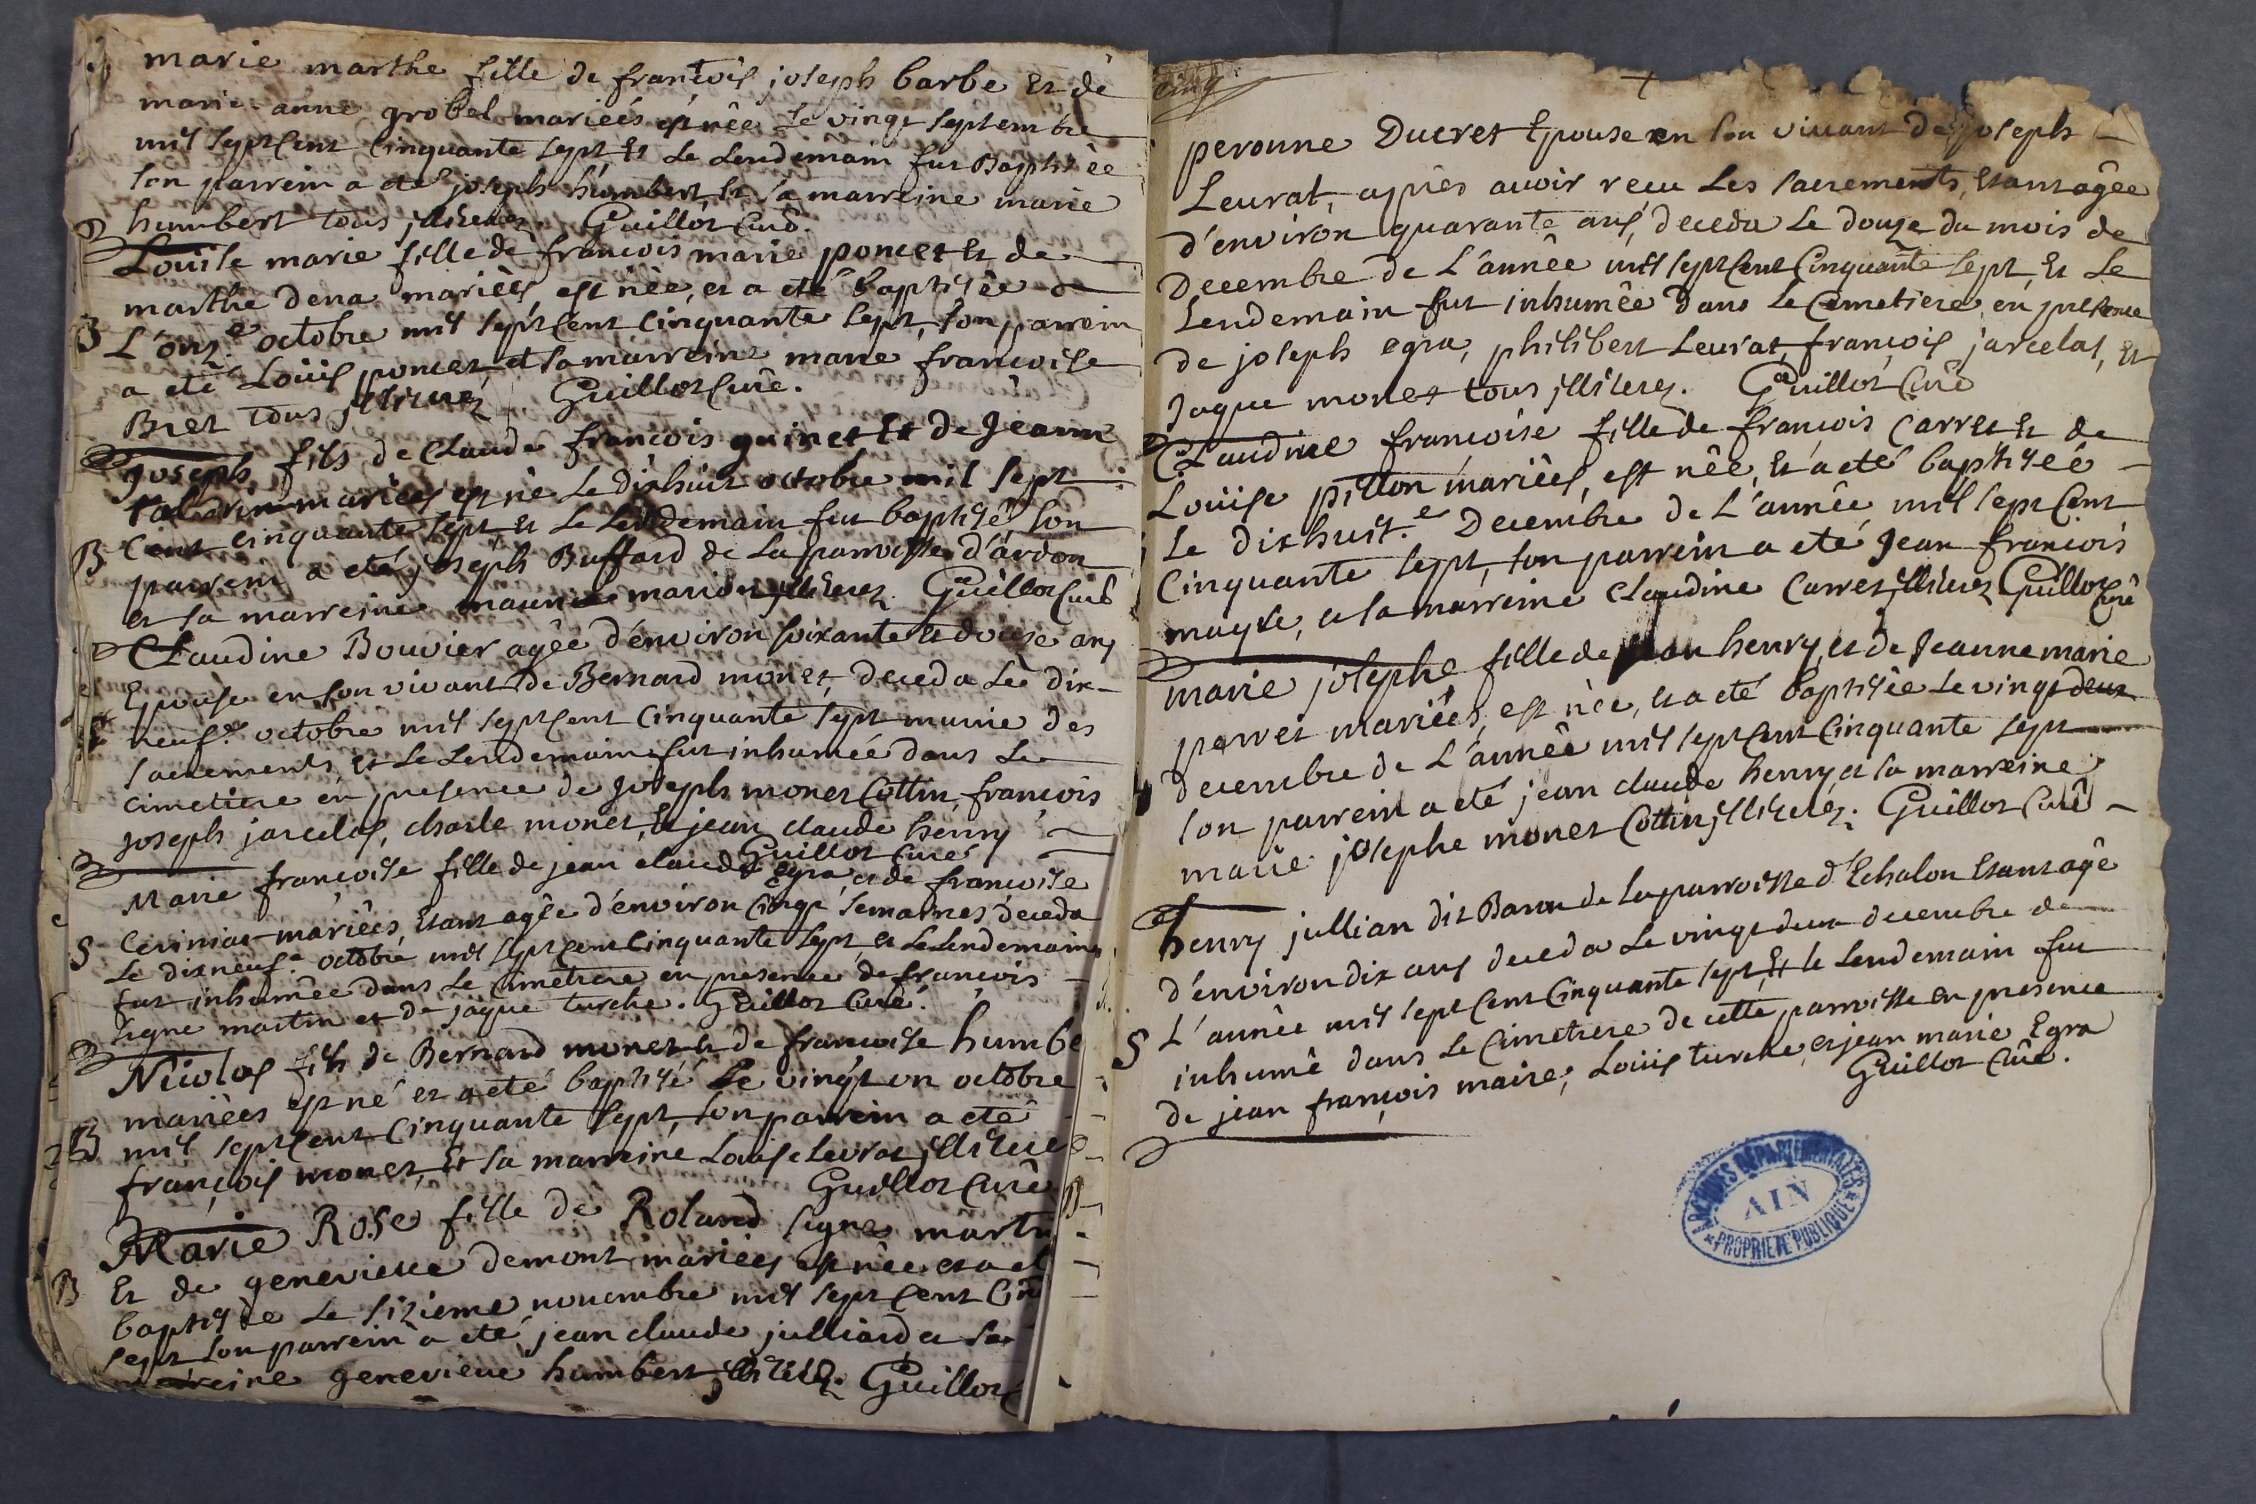 marie marthe fille de françois joseph barbe Et de
marie-anne grobel mariés est née le vingt septembre
mil sept Cent Cinquante sept, Et Le Lendemain fut Baptisée
son parrein a eté joseph humbert, Et sa marreine marie
humbert tous illiterez. Guillot Curé.
B
Loüise marie fille de francois marie poncet Et de
marthe dena mariéés, est née, et a eté baptisée
B L'onz.e octobre mil sept Cent Cinquante sept, son parrein
a eté Loüis poncet et sa marreine marie francoise
Bret tous illiterez Guillot Curé.
Joseph fils de Claude françois guinet Et de Jeanne
mariées est né Le dixhuit octobre mil sept
B Cent cinquante sept, Et Le Lendemain fut baptisé, son
parrein a eté joseph Buffard de La parroisse d'ardon
et sa marreine maurice marion illiterez. Guillot Curé
Claudine Bouvier agée d'environ soixante et douze ans
Epouse en son vivant de Bernard monet deceda Le dix-
neuf.e octobre mil sept Cent Cinquante sept munie des
sacrements, et Le Lendemain fut inhumée dans Le
cimetiere en presence de Joseph monet Cottin, françois
joseph jarcelat, charle monet, Et jean claude henry
Guillot Curé
Marie françoise fille de jean claude Egra et de francoise
S Ceviniat mariées, Etant agée d'environ Cinq semaines deceda
Le dixneuf.e octobre mil sept cent Cinquante sept, et Le Lendemain
fut inhumée dans Le Cimetiere en presence de françois
signe martin et de jaque turche. Guillot Curé.
Nicolas fils de Bernard monet et de francoise humbe
mariées est né et a eté baptisé Le vingt un octobre
B mil sept Cent Cinquante sept, son parrein a eté
françois monet, Et sa marreine Loüise Levrat, illiterez
Guillot Curé
Marie Rose fille de Roland signe marti
B Et de genevieve demont, mariées est née et a et
baptisée Le sixieme novembre mil sept Cent Cin
sept son parrein a eté jean claude julliard et sa
marreine genevieve humbert illiterez. Guillot
cinq
peronne Ducret Epouse en son vivant de joseph
Leurat, apres avoir reçu Les sacrements, Etant agée
d'environ quarante ans, deceda Le douze du mois de
Decembre de L'année mil sept Cent Cinquante sept, Et Le
Lendemain fut inhumée dans Le Cimetiere en presence
de joseph egra, philibert Leurat, françois jarcelat, Et
Jaque monet tous illiterez. Guillot Curé
Claudine françoise fille de françois Carret, Et de
Loüise pitton mariées, est née, Et a eté baptisée
Le dixhuit.e Decembre de L'année mil sept Cent
Cinquante sept, son parrein a eté Jean francois
mayte, et sa marreine Claudine Carret, illiterez Guillot Curé
marie josephe fille de jean henry, et de Jeanne marie
perret mariées, est née, Et a eté baptisée Le vingt deux
decembre de L'année mil sept Cent Cinquante sept
son parrein a eté jean claude henry, et sa marreine
marie josephe monet Cottin, illiterez. Guillot Curé
henry jullian dit Baron de La parroisse d'Echalon Etant agé
d'environ dix ans deceda Le vingt deux decembre de
L'année mil sept Cent Cinquante sept, Et le Lendemain fut
S inhumé dans Le Cimetiere de cette parroisse en presence
de jean françois maire, Loüis turche, et jean marie Egra
Guillot Curé.
ARCHIVES DÉPARTEMENTALES
AIN
PROPRIÉTÉ PUBLIQUE